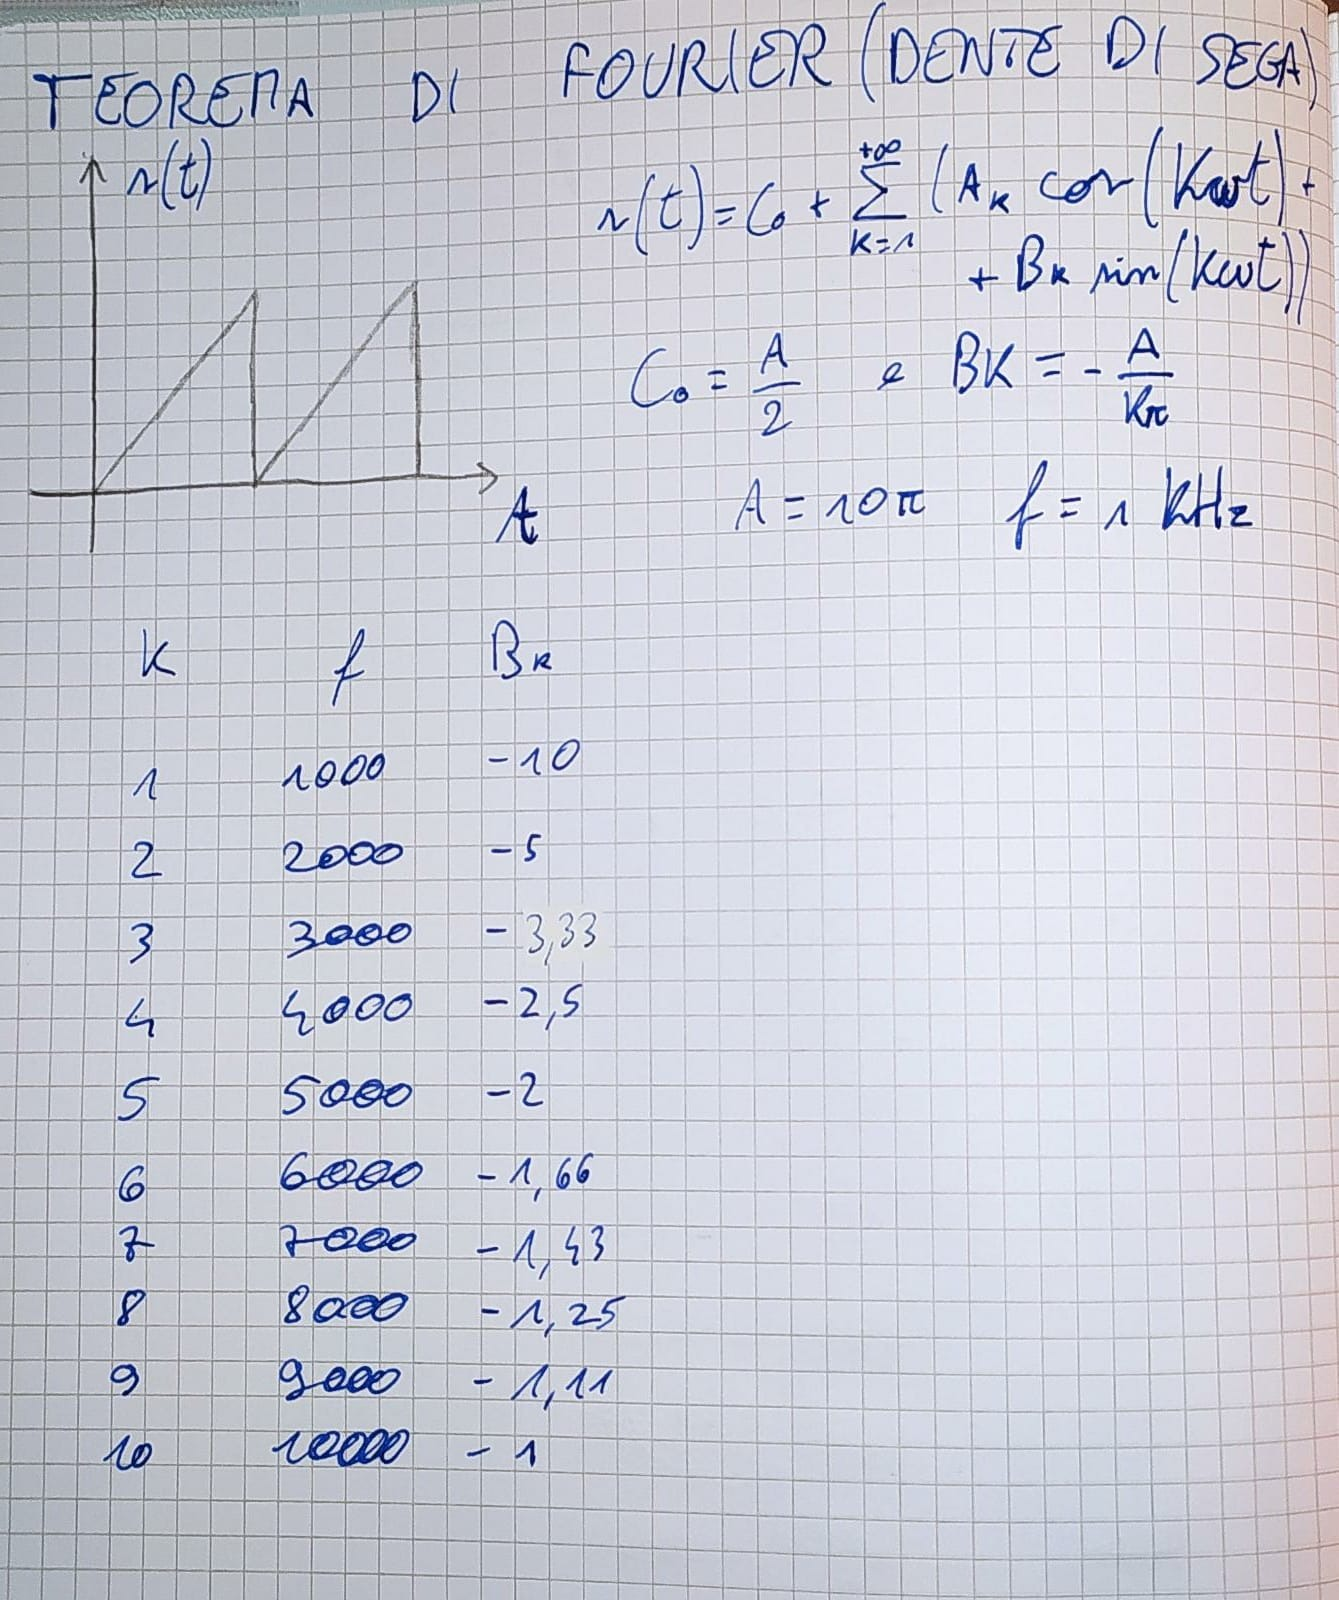 TEOREMA DI FOURIER (DENTE DI SEGA)
v(t)
v(t) = C₀ + +∞ Σ K=1 (Aₖ cos(Kωt) +
+ Bₖ sin(Kωt))
C₀ = A/2 e BK = - A/Kπ
A = 10π f = 1 KHz
t
K f Bₖ
1 1000 -10
2 2000 -5
3 3000 -3,33
4 4000 -2,5
5 5000 -2
6 6000 -1,66
7 7000 -1,43
8 8000 -1,25
9 9000 -1,11
10 10000 -1